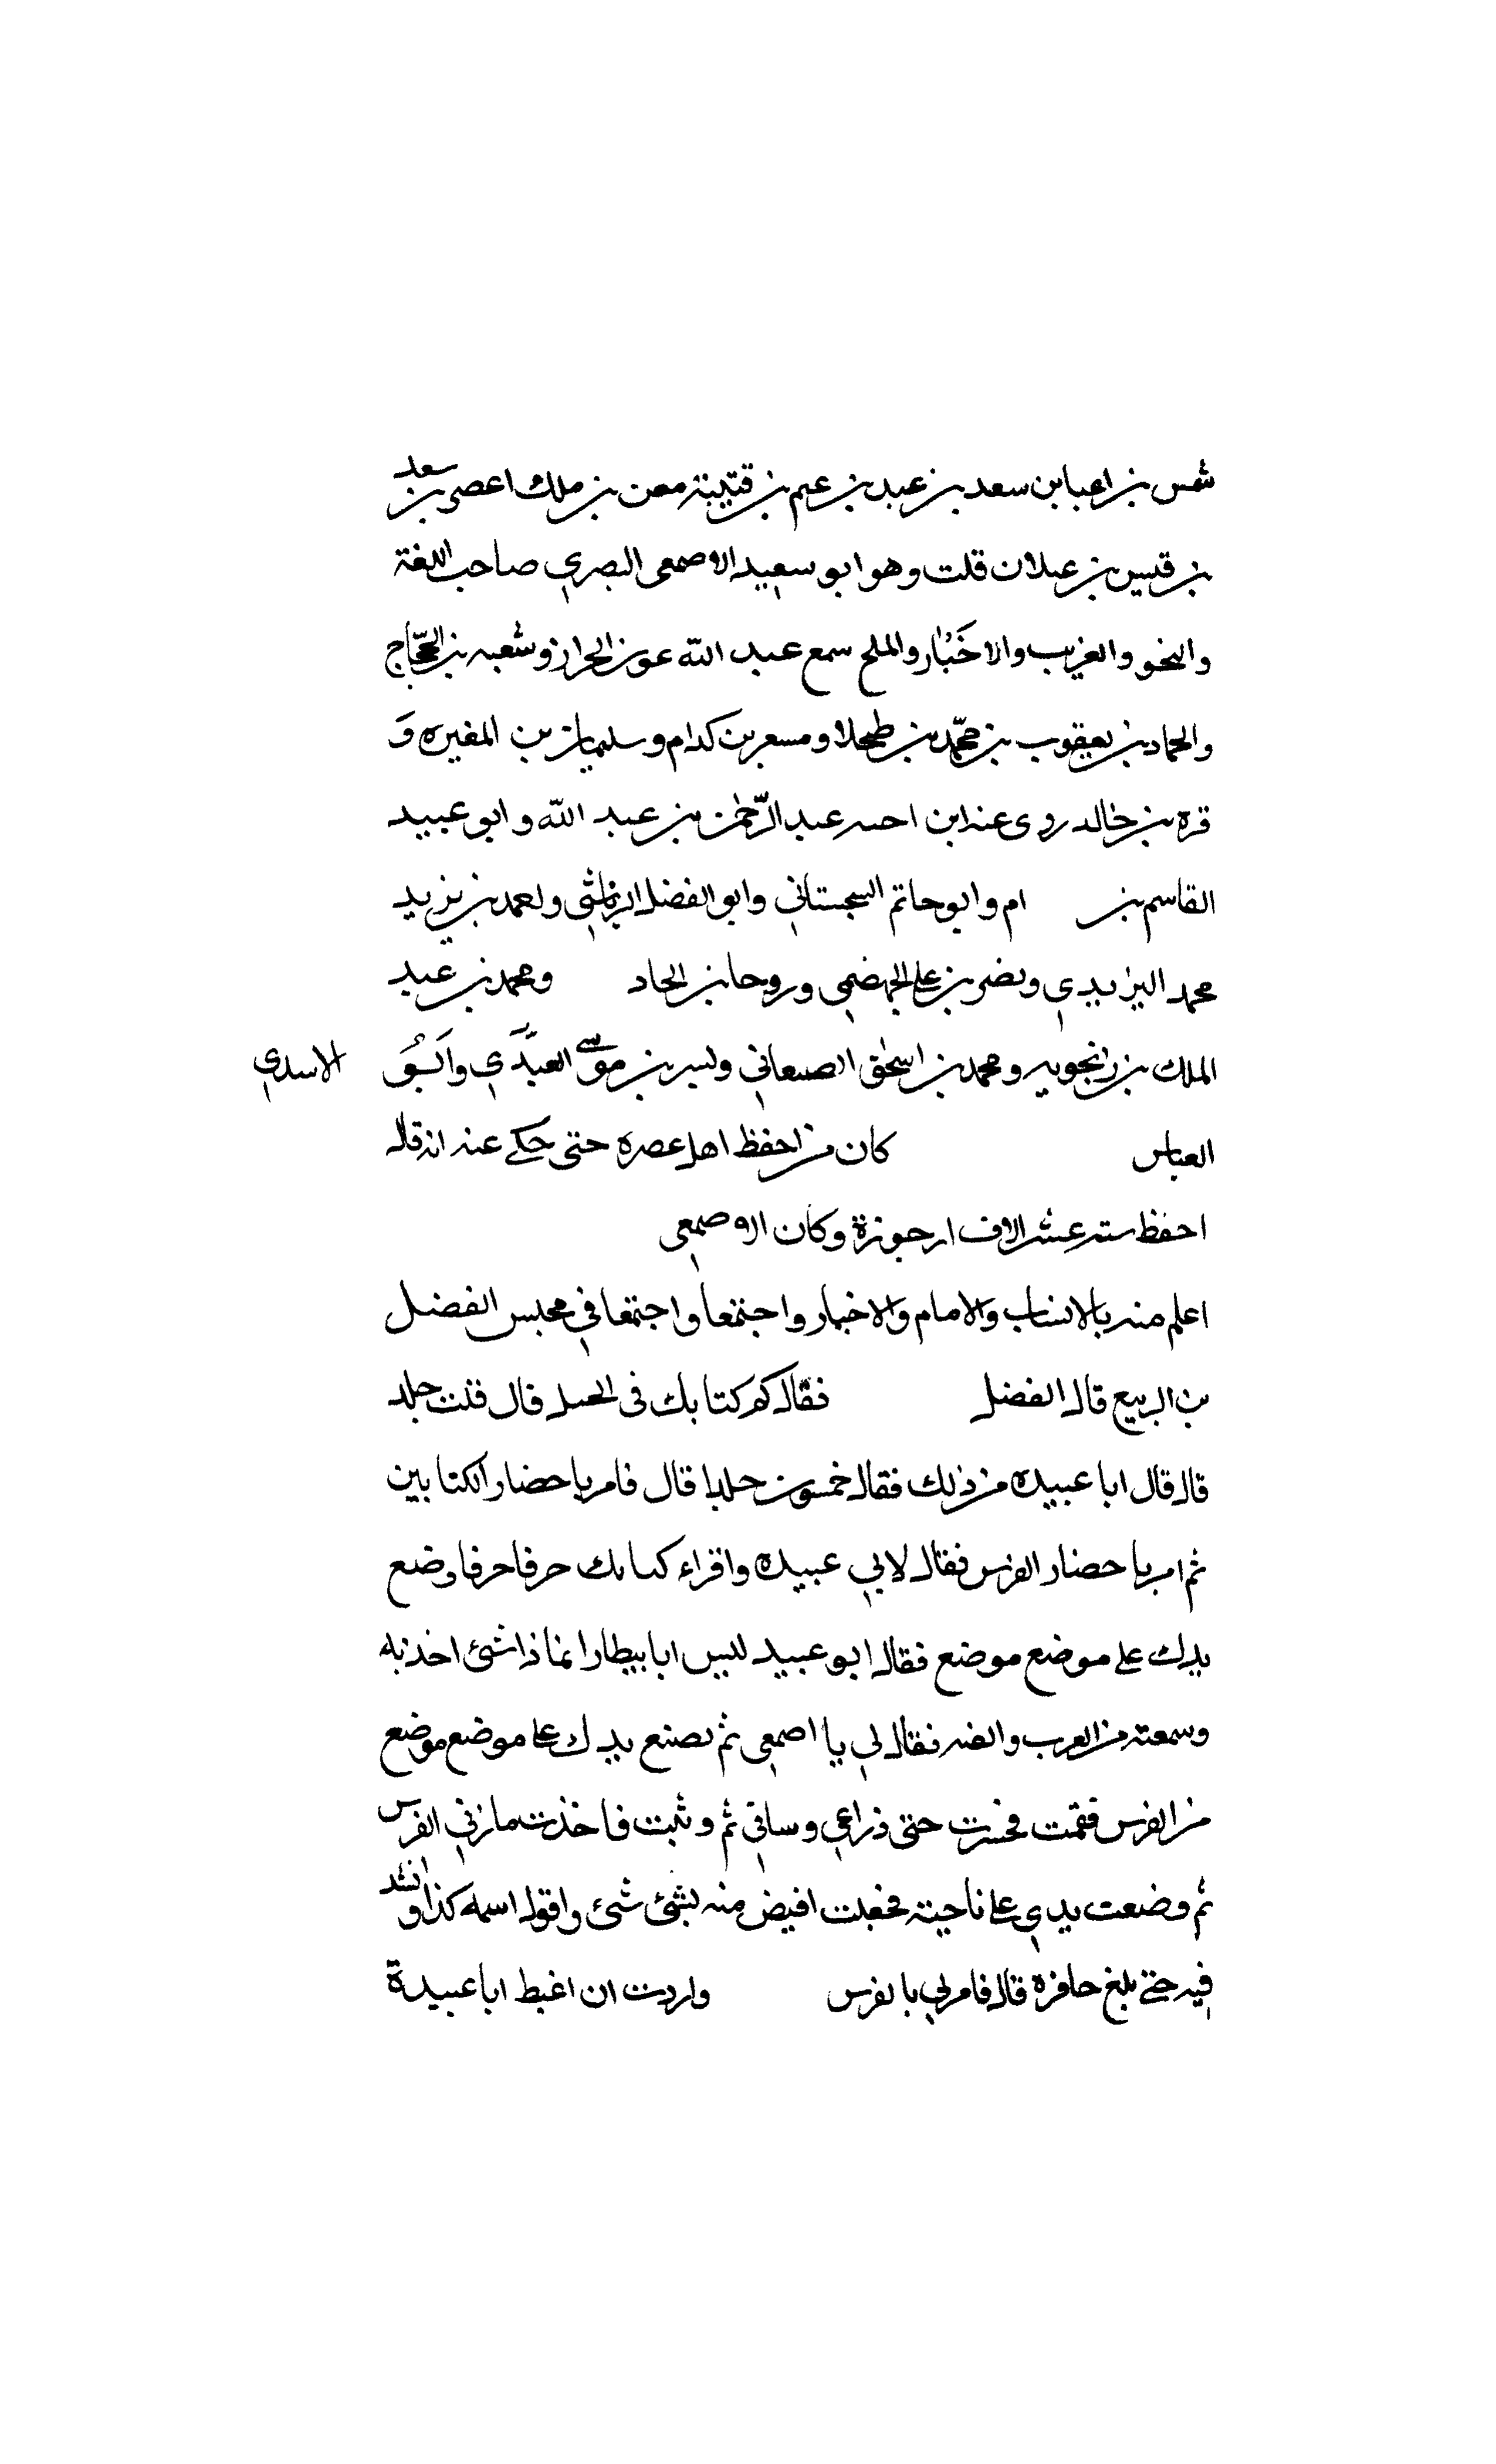 شمس بن اعيا بن سعد بن عبد بن غنم بن قتيبة معن بن ملك اعصر بن سعد
بن قيس بن عيلان قلت وهو ابو سعيد الاصمعي البصري صاحب اللغة
والنحو والغريب والاخبار والملح سمع عبد الله عون الخراز وشعبه بن الحجّاج
والحماد بن يعقوب بن محمّد بن طحلا ومسعر بن كدام وسليمان بن المغيره وَ
قره بن خالد روى عنه ابن اخيه عبد الرّحمن بن عبد الله وابو عبيد
القاسم بن ام وابو حاتم السجستاني وابو الفضل الرياشي ولعمد بن يزيد
محمد اليزيدي ونصر بن علي الجهضمي وروحا بن الحاد ومحمد بن عبد
الملك بن زنجويه ومحمد بن اسحق الصنعاني وبسر بن موسى وابو الاسدي
العباس كان من احفظ اهل عصره حتى حكى عنه انه قال
احفظ سته عشر الاف ارجوزة وكان الاصمعي
اعلم منه بالانساب والامام والاخبار واجتمعا واجتمعا في مجلس الفضل
بن الربيع قال الفضل فقال كم كتابك في الخيل قال قلت جلد
قال قال ابا عبيده من ذلك فقال خمسون جلدا قال فامر باحضار الكتابين
ثم امر باحضار الفرس فقال لابي عبيده واقراء كتابك حرفا حرفا وضع
يدك على موضع موضع فقال ابو عبيد ليس ابا بيطارا انما ذا شئ اخذته
وسمعته من العرب والفته فقال لي يا اصمعي ثم تصنع يدك على موضع موضع
من الفرس فقمت فحسرت حتى ذراعي وساقي ثم وثبت فاخذت ماذني الفرس
ثم وضعت يدي على ناحيته فجعلت اقبض منه بشئ شئ واقول اسمه كذا وانشد
فيه حتى بلغ حافره قال فامر لي بالفرس واردت ان اغيظ ابا عبيدة